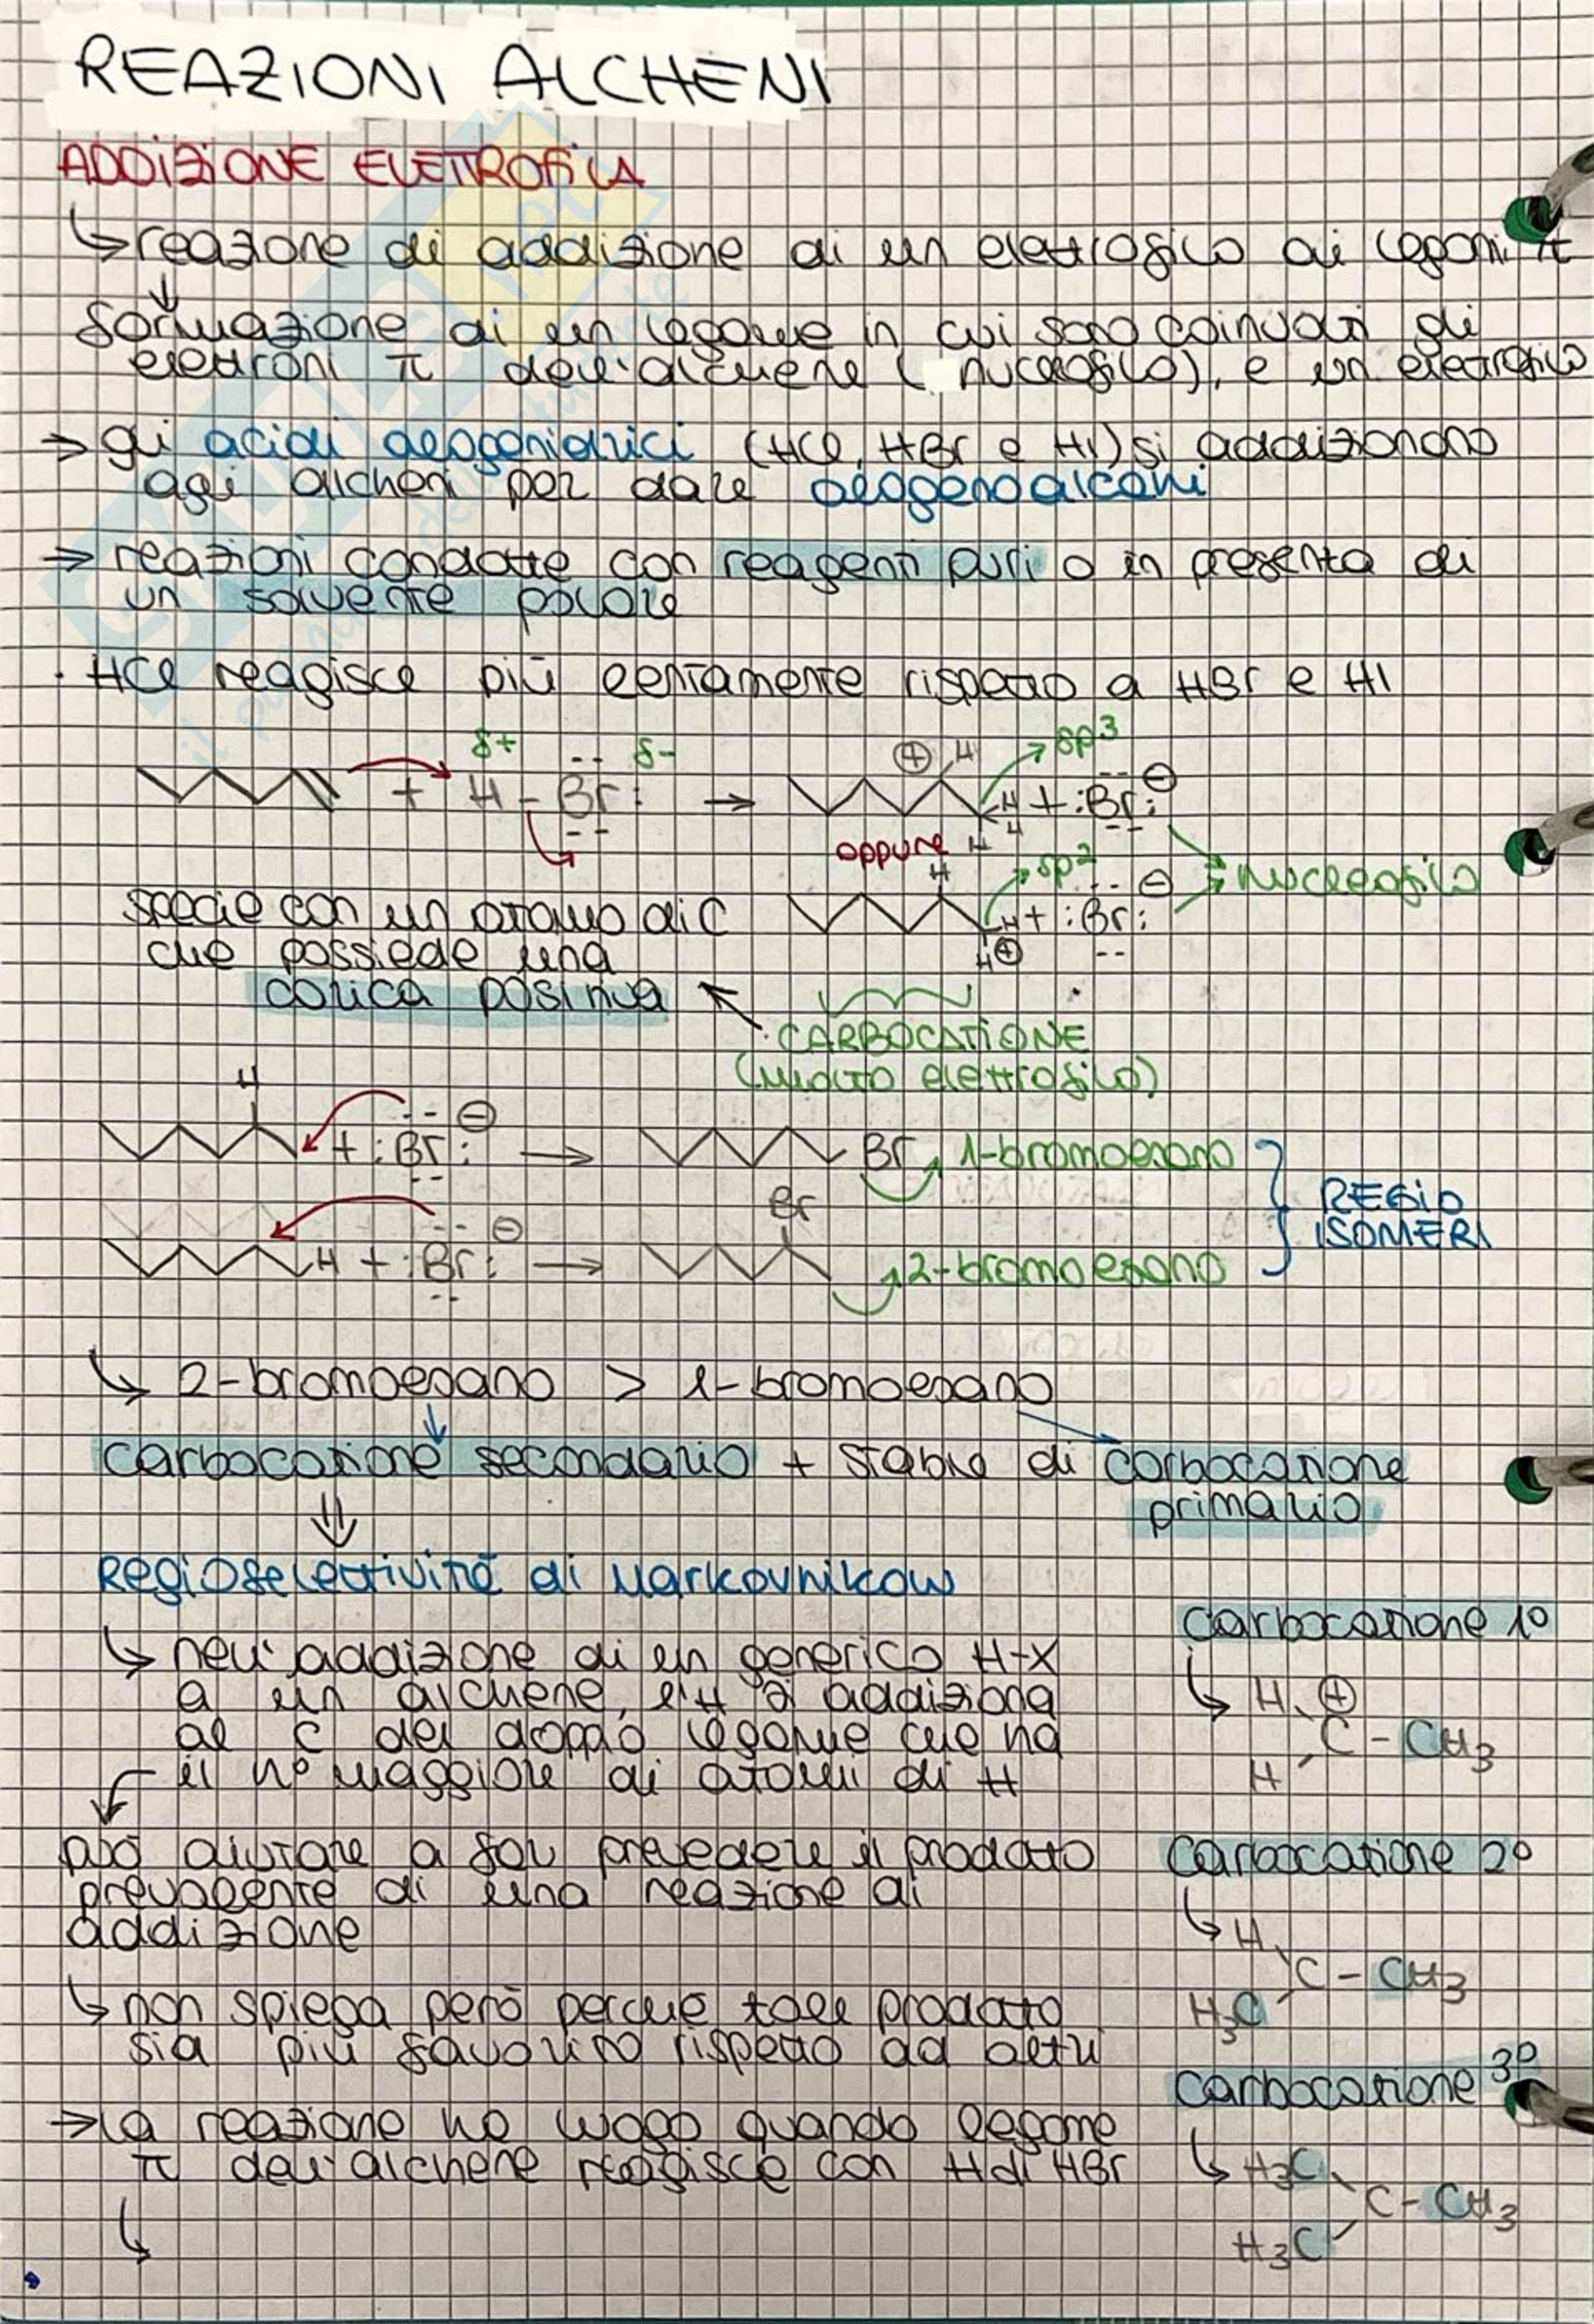 REAZIONI ALCHENI
ADDIZIONE ELETTROFILA
↳ reazione di addizione di un elettrofilo ai legami π
↓
formazione di un legame in cui sono coinvolti gli
elettroni π dell'alchene ( nucleofilo), e un elettrofilo
→ gli acidi alogenidrici (HCl, HBr e HI) si addizionano
agli alcheni per dare alogenoalcani
→ reazioni condotte con reagenti puri o in presenza di
un solvente polare
· HCl reagisce più lentamente rispetto a HBr e HI
δ+ δ- ⊕ H sp³
+ H - Br : → H + :Br: ⊖
H
oppure H
H sp² ⊖ nucleofilo
specie con un atomo di C H + :Br:
che possiede una H ⊕
carica positiva
CARBOCATIONE
(molto elettrofilo)
H
+ :Br: ⊖ → Br 1-bromoesano
REGIO
ISOMERI
Br
H + :Br: ⊖ → 2-bromoesano
↳ 2-bromoesano > 1-bromoesano
carbocatione secondario + stabile di carbocatione
primario
⇓
Regioselettività di Markovnikow
carbocatione 1º
↳ nell'addizione di un generico H-X
a un alchene, l'H si addiziona
al C del doppio legame che ha
il nº maggiore di atomi di H
↳ H ⊕
C - CH3
H
può aiutare a far prevedere il prodotto
prevalente di una reazione di
addizione
carbocatione 2º
↳ H
C - CH3
H3C
↳ non spiega però perchè tale prodotto
sia più favorito rispetto ad altri
carbocatione 3º
→ la reazione ha luogo quando legame
π dell'alchene reagisce con H di HBr
↳
↳ H3C
C - CH3
H3C